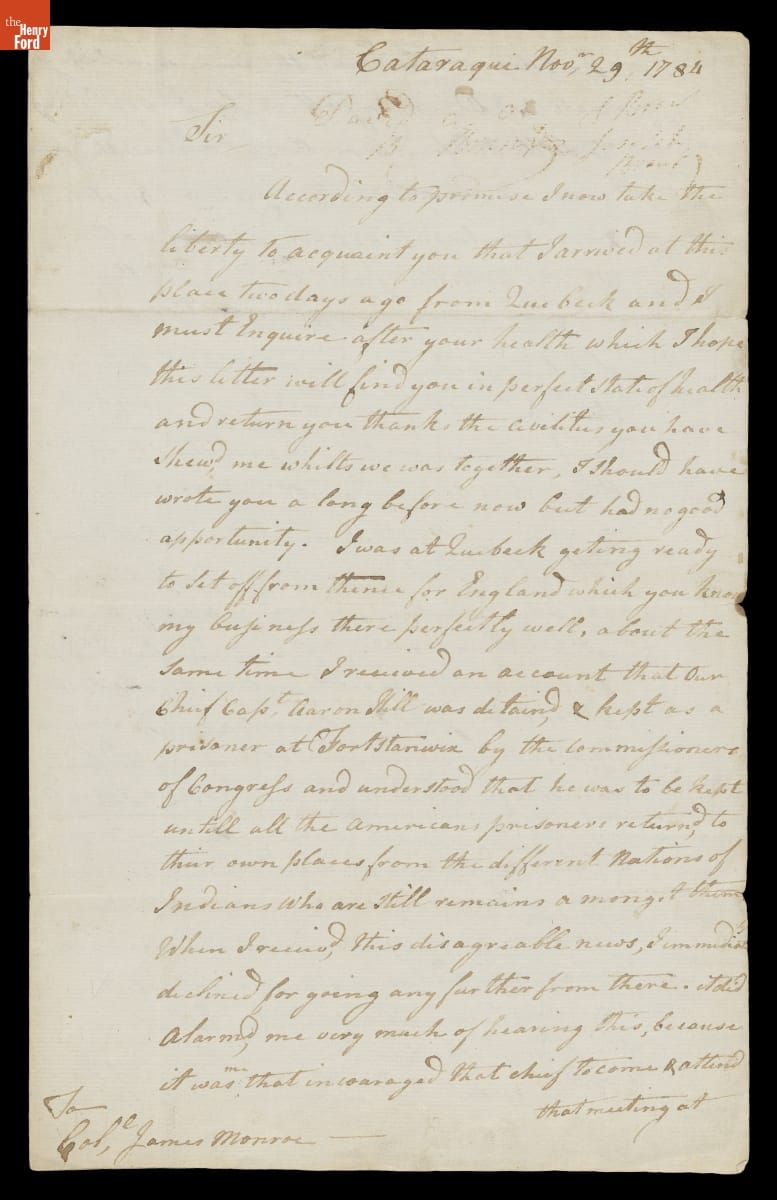 the
Henry
Ford
Cataraqui Novr. 29th, 1784
Sir
According to promise I now take the
liberty to acquaint you that I arrived at this
place two days ago from Quebeck and I
must Enquire after your health which I hope
this litter will find you in perfect state of health
and return you thanks the civilitus you have
Shew'd me whilts we was together, I should have
wrote you a long before now but had no good
apportunity. I was at Quebeck geting ready
to Set off from thence for England which you know
my business there perfectly well, about the
same time I received an account that Our
Chief Capt. Aaron Hill was detain'd, & kept as a
prisoner at Fort Stanwix by the Commissioners
of Congress and understood that he was to be kept
untill all the Americans prisoners return'd to
their own places from the different Nations of
Indians who are Still remains a mongst them
When I receiv'd, this disagreable news, I immediatly
declined for going any further from there. it did
Alarm'd, me very much of hearing this, because
it was me that incouraged that chief to come & attend
that meeting at
To
Coll. James Monroe